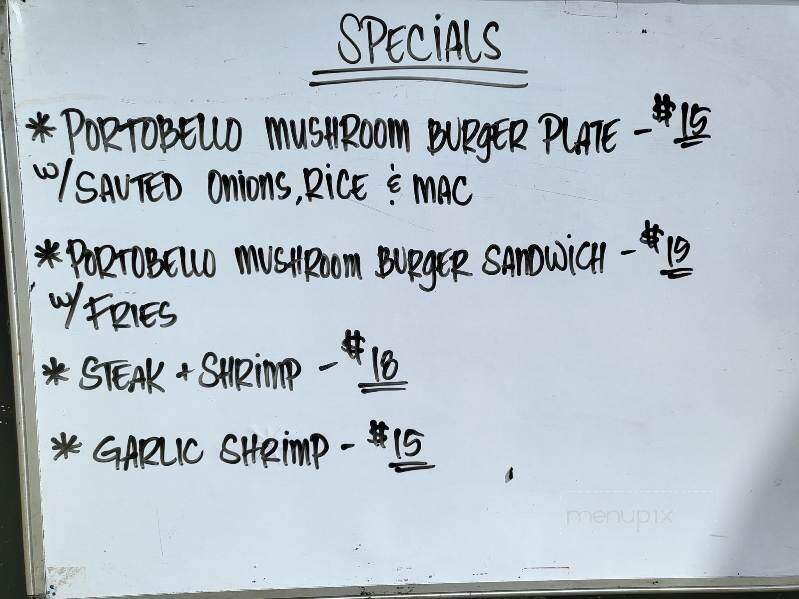 SPECIALS
* PORTOBELLO MUSHROOM BURGER PLATE - $15
w/ SAUTED ONIONS, RICE & MAC
* PORTOBELLO MUSHROOM BURGER SANDWICH - $15
w/ FRIES
* STEAK + SHRIMP - $18
* GARLIC SHRIMP - $15
menupix